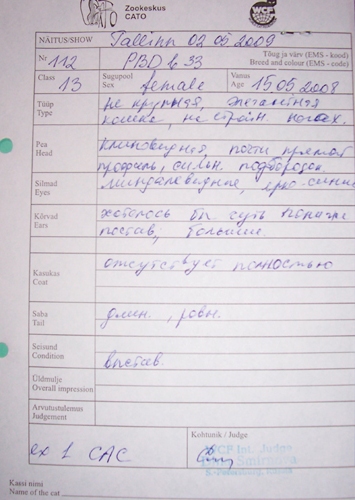 Zookeskus
CATO
WCF
NÄITUS/SHOW Tallinn 02 05 2009
Nr 112 PBD b 33 Tõug ja värv (EMS - kood)
Breed and colour (EMS - code)
Class 13 Sugupool
Sex female Vanus
Age 15 05 2008
Tüüp
Type не крупная, элегантная
кошка, на строй. ногах.
Pea
Head клиновидная, почти прямой
профиль, сильн. подбородок.
Silmad
Eyes миндалевидные, ярко-синие
Kõrvad
Ears хотелось бы чуть пониже
постав, большие.
Kasukas
Coat отсутствует полностью
Saba
Tail длин., ровн.
Seisund
Condition выстав.
Üldmulje
Overall impression
Arvutustulemus
Judgement
Kohtunik / Judge
ex 1 CAC
WCF Int. Judge
Smirnova
Kassi nimi
Name of the cat